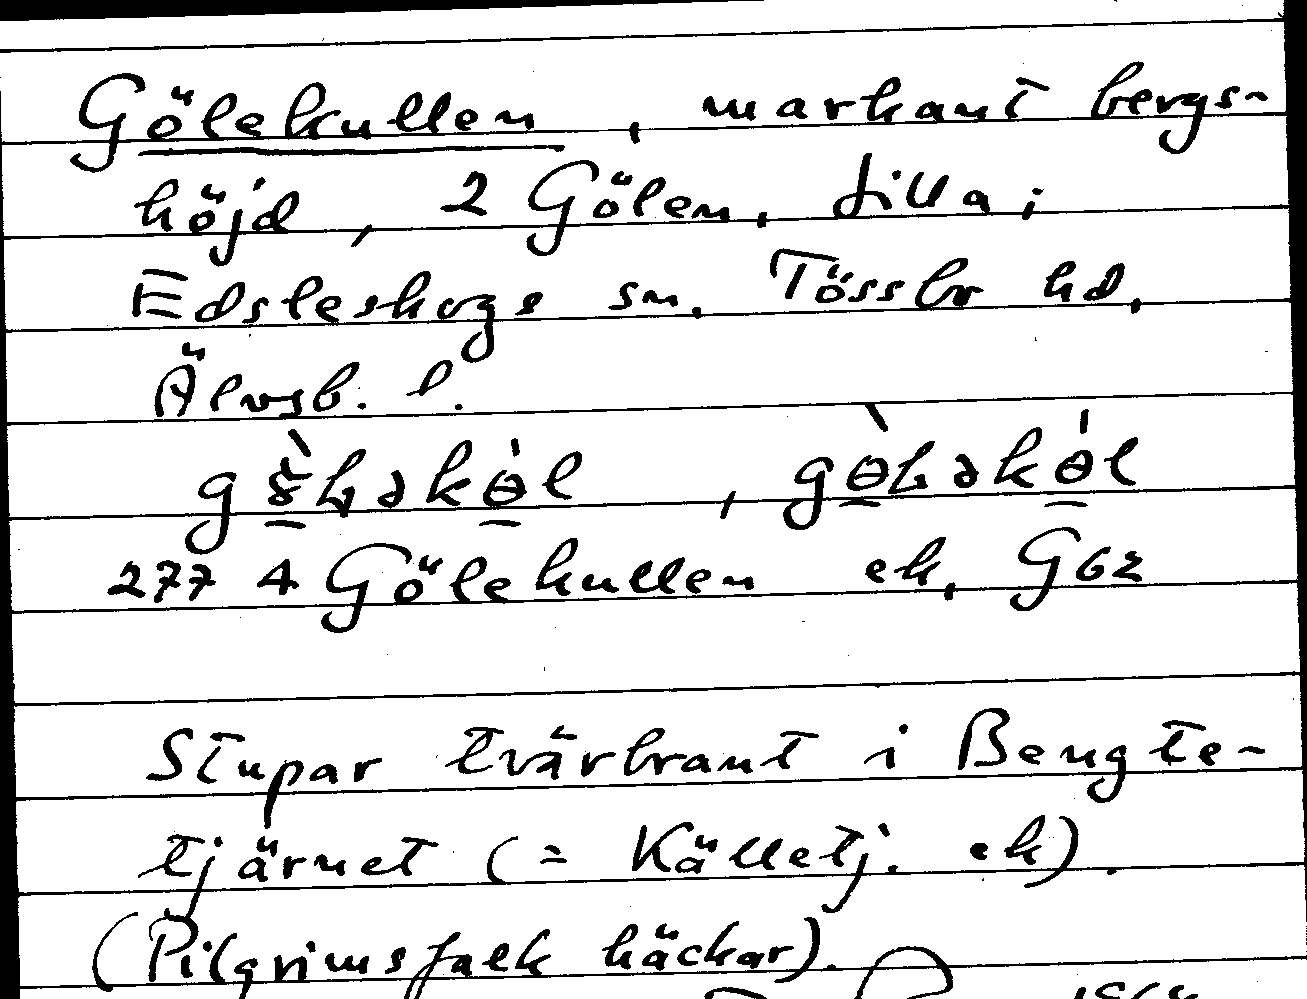 Gölekullen, markant bergs-
höjd, 2 Gölen, Lilla;
Edsleskogs sn. Tössbo hd.
Älvsb. l.
2774 Gölekullen ek. G62
Stupar tvärbrant i Bengte-
tjärnet (= Källetj. ek).
(Pilgrimsfalk häckar).